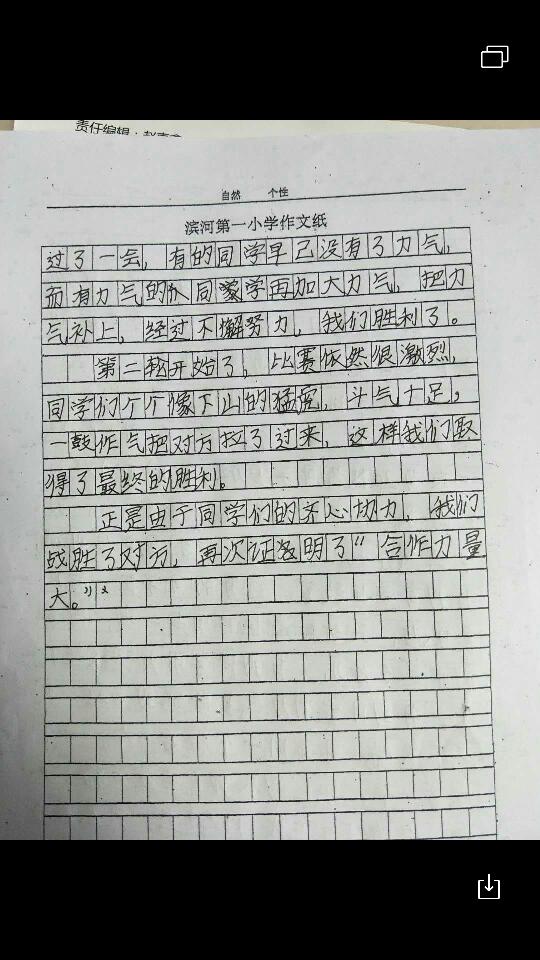 责任编辑：
自然 个性
滨河第一小学作文纸
过了一会，有的同学早已没有了力气，
而有力气的同学再加大力气，把力
气补上，经过不懈努力，我们胜利了。
第二轮开始了，比赛依然很激烈，
同学们个个像下山的猛虎，斗气十足，
一鼓作气把对方拉了过来，这样我们取
得了最终的胜利。
正是由于同学们的齐心协力，我们
战胜了对方，再次证明了“合作力量
大。”